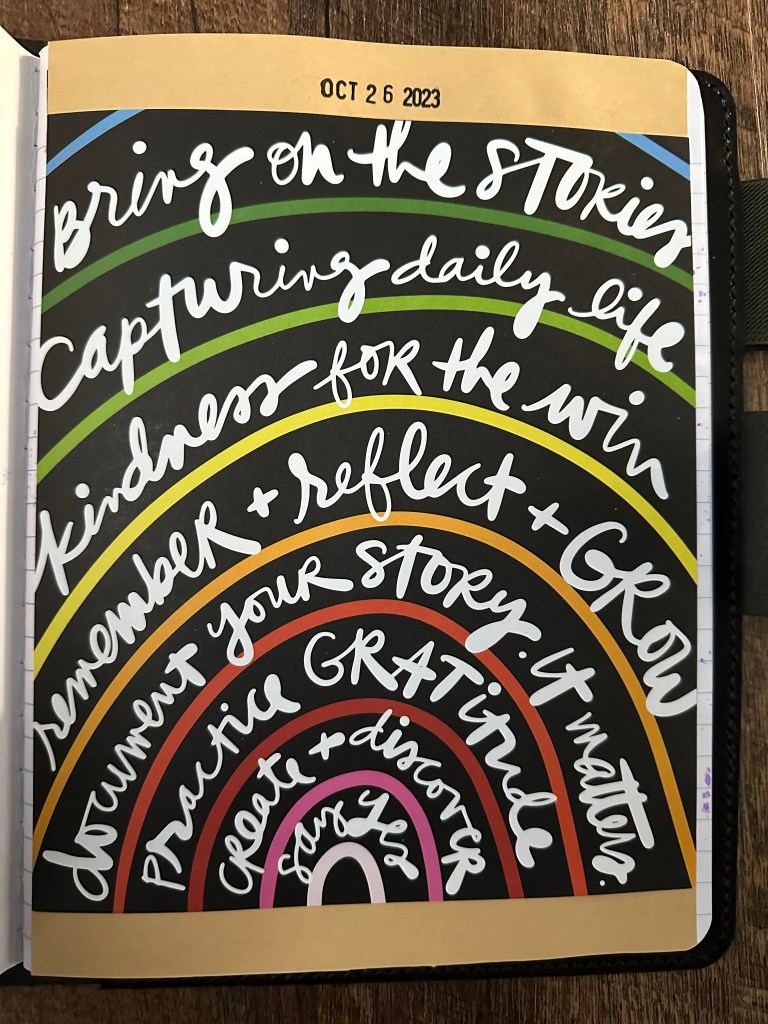 OCT 26 2023
Bring on the STORies
Capturing daily life
kindness for the win
remembeR + reflect + GROW
document youR STORy. it matters.
PRactice GRATitude
CReate + discoveR
say yes